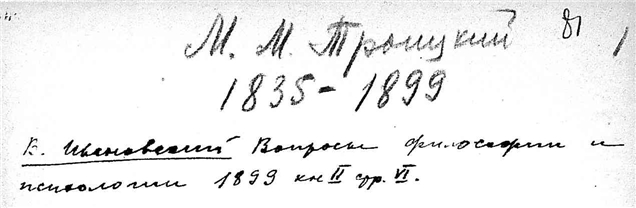 М. М. Троицкий 81
1835 - 1899
В. Ивановский Вопросы философии и
психологии 1899 кн II стр. VI.